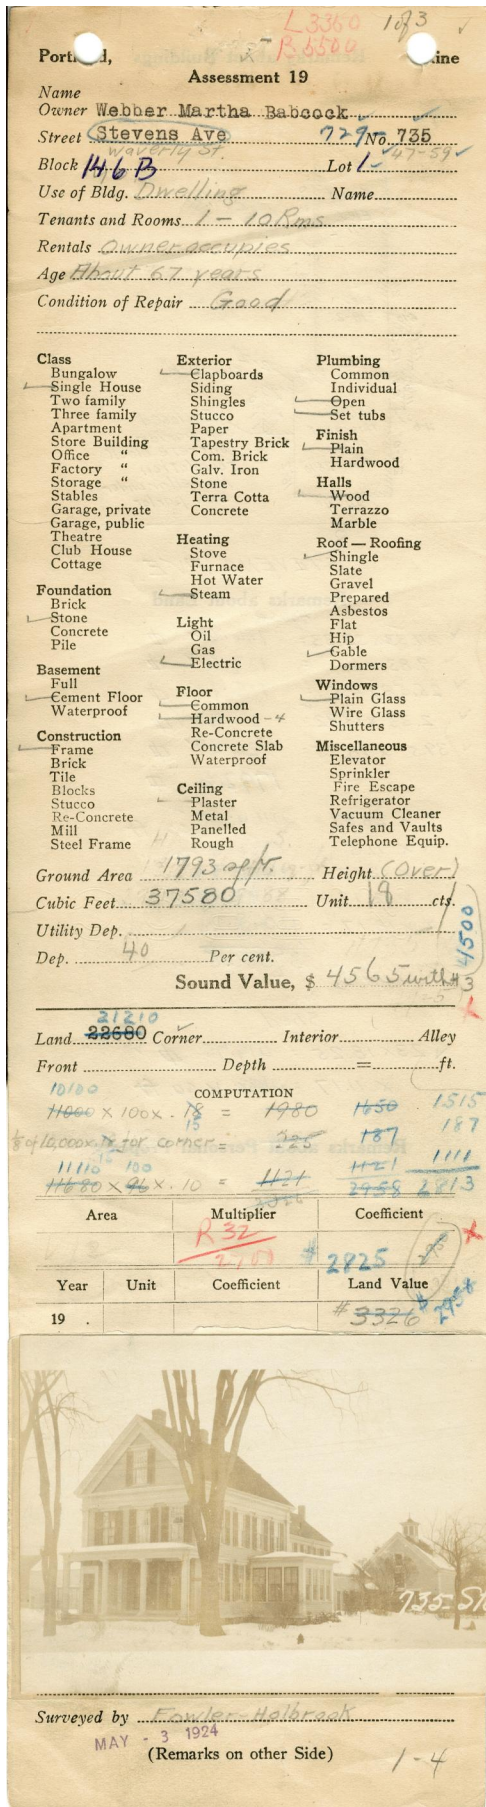 L3350 1 of 3
R5500
Portland, Maine
Assessment 19
Name
Owner Webber Martha Babcock
Street Stevens Ave 729- No. 735
Waverly St. 47-59
Block 146B Lot 1-
Use of Bldg. Dwelling Name
Tenants and Rooms 1 - 10 Rms
Rentals Owner occupies
Age About 67 years
Condition of Repair Good
Class
Bungalow
Single House
Two family
Three family
Apartment
Store Building
Office "
Factory "
Storage "
Stables
Garage, private
Garage, public
Theatre
Club House
Cottage
Foundation
Brick
Stone
Concrete
Pile
Basement
Full
Cement Floor
Waterproof
Construction
Frame
Brick
Tile
Blocks
Stucco
Re-Concrete
Mill
Steel Frame
Exterior
Clapboards
Siding
Shingles
Stucco
Paper
Tapestry Brick
Com. Brick
Galv. Iron
Stone
Terra Cotta
Concrete
Heating
Stove
Furnace
Hot Water
Steam
Light
Oil
Gas
Electric
Floor
Common
Hardwood - 4
Re-Concrete
Concrete Slab
Waterproof
Ceiling
Plaster
Metal
Panelled
Rough
Plumbing
Common
Individual
Open
Set tubs
Finish
Plain
Hardwood
Halls
Wood
Terrazzo
Marble
Roof — Roofing
Shingle
Slate
Gravel
Prepared
Asbestos
Flat
Hip
Gable
Dormers
Windows
Plain Glass
Wire Glass
Shutters
Miscellaneous
Elevator
Sprinkler
Fire Escape
Refrigerator
Vacuum Cleaner
Safes and Vaults
Telephone Equip.
Ground Area 1793 sq ft. Height (Over)
Cubic Feet 37580 Unit 18 cts.
Utility Dep.
4500
Dep. 40 Per cent.
Sound Value, $ 4565 with #3
21210
Land 22680 Corner Interior Alley
Front Depth = ft.
COMPUTATION
10100
11000 x 100 x .18 = 1980 1650 1515
15
1/8 of 10,000 x .18 for corner = 225 187 187
11110 100
11680 x 96 x .10 = 1121 1121 1111
3326 2958 2813
Area Multiplier Coefficient
R 32
2700 $ 2825
Year Unit Coefficient Land Value
19 . #3326 $2958
735-St
Surveyed by Fowler-Holbrook
MAY - 3 1924
(Remarks on other Side)
1-4